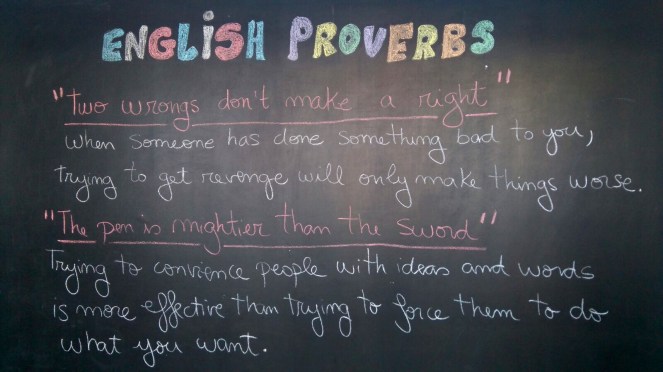 ENGLISH PROVERBS
"Two wrongs don't make a right"
When someone has done something bad to you,
trying to get revenge will only make things worse.
"The pen is mightier than the sword"
Trying to convience people with ideas and words
is more effective than trying to force them to do
what you want.